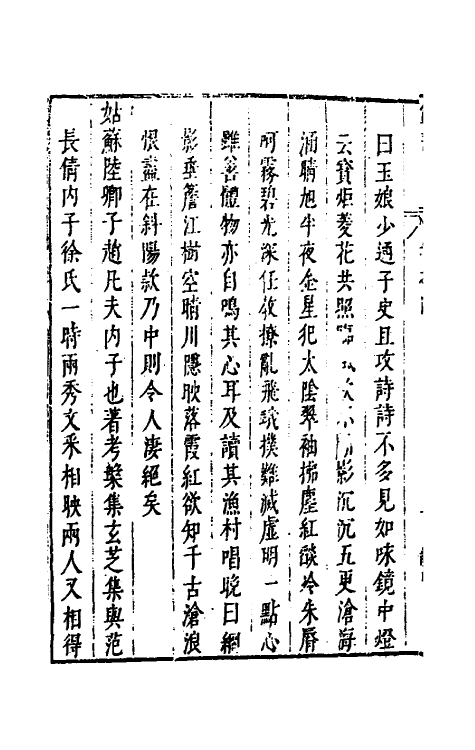 曰玉娘少通子史且攻詩詩不多見如咏鏡中燈
云寶炬菱花共照臨 影沉沉五更滄海
涵晴旭半夜金星犯太陰翠袖拂塵紅燄冷朱脣
呵霧碧光深任教撩亂飛蛾撲難滅虛明一點心
雖善體物亦自鳴其心耳及讀其漁村唱晚曰網
影垂簷江樹空晴川隱映落霞紅欲知千古滄浪
恨盡在斜陽欸乃中則令人淒絕矣
姑蘇陸卿子趙凡夫內子也著考槃集玄芝集與范
長倩內子徐氏一時兩秀文采相映兩人又相得